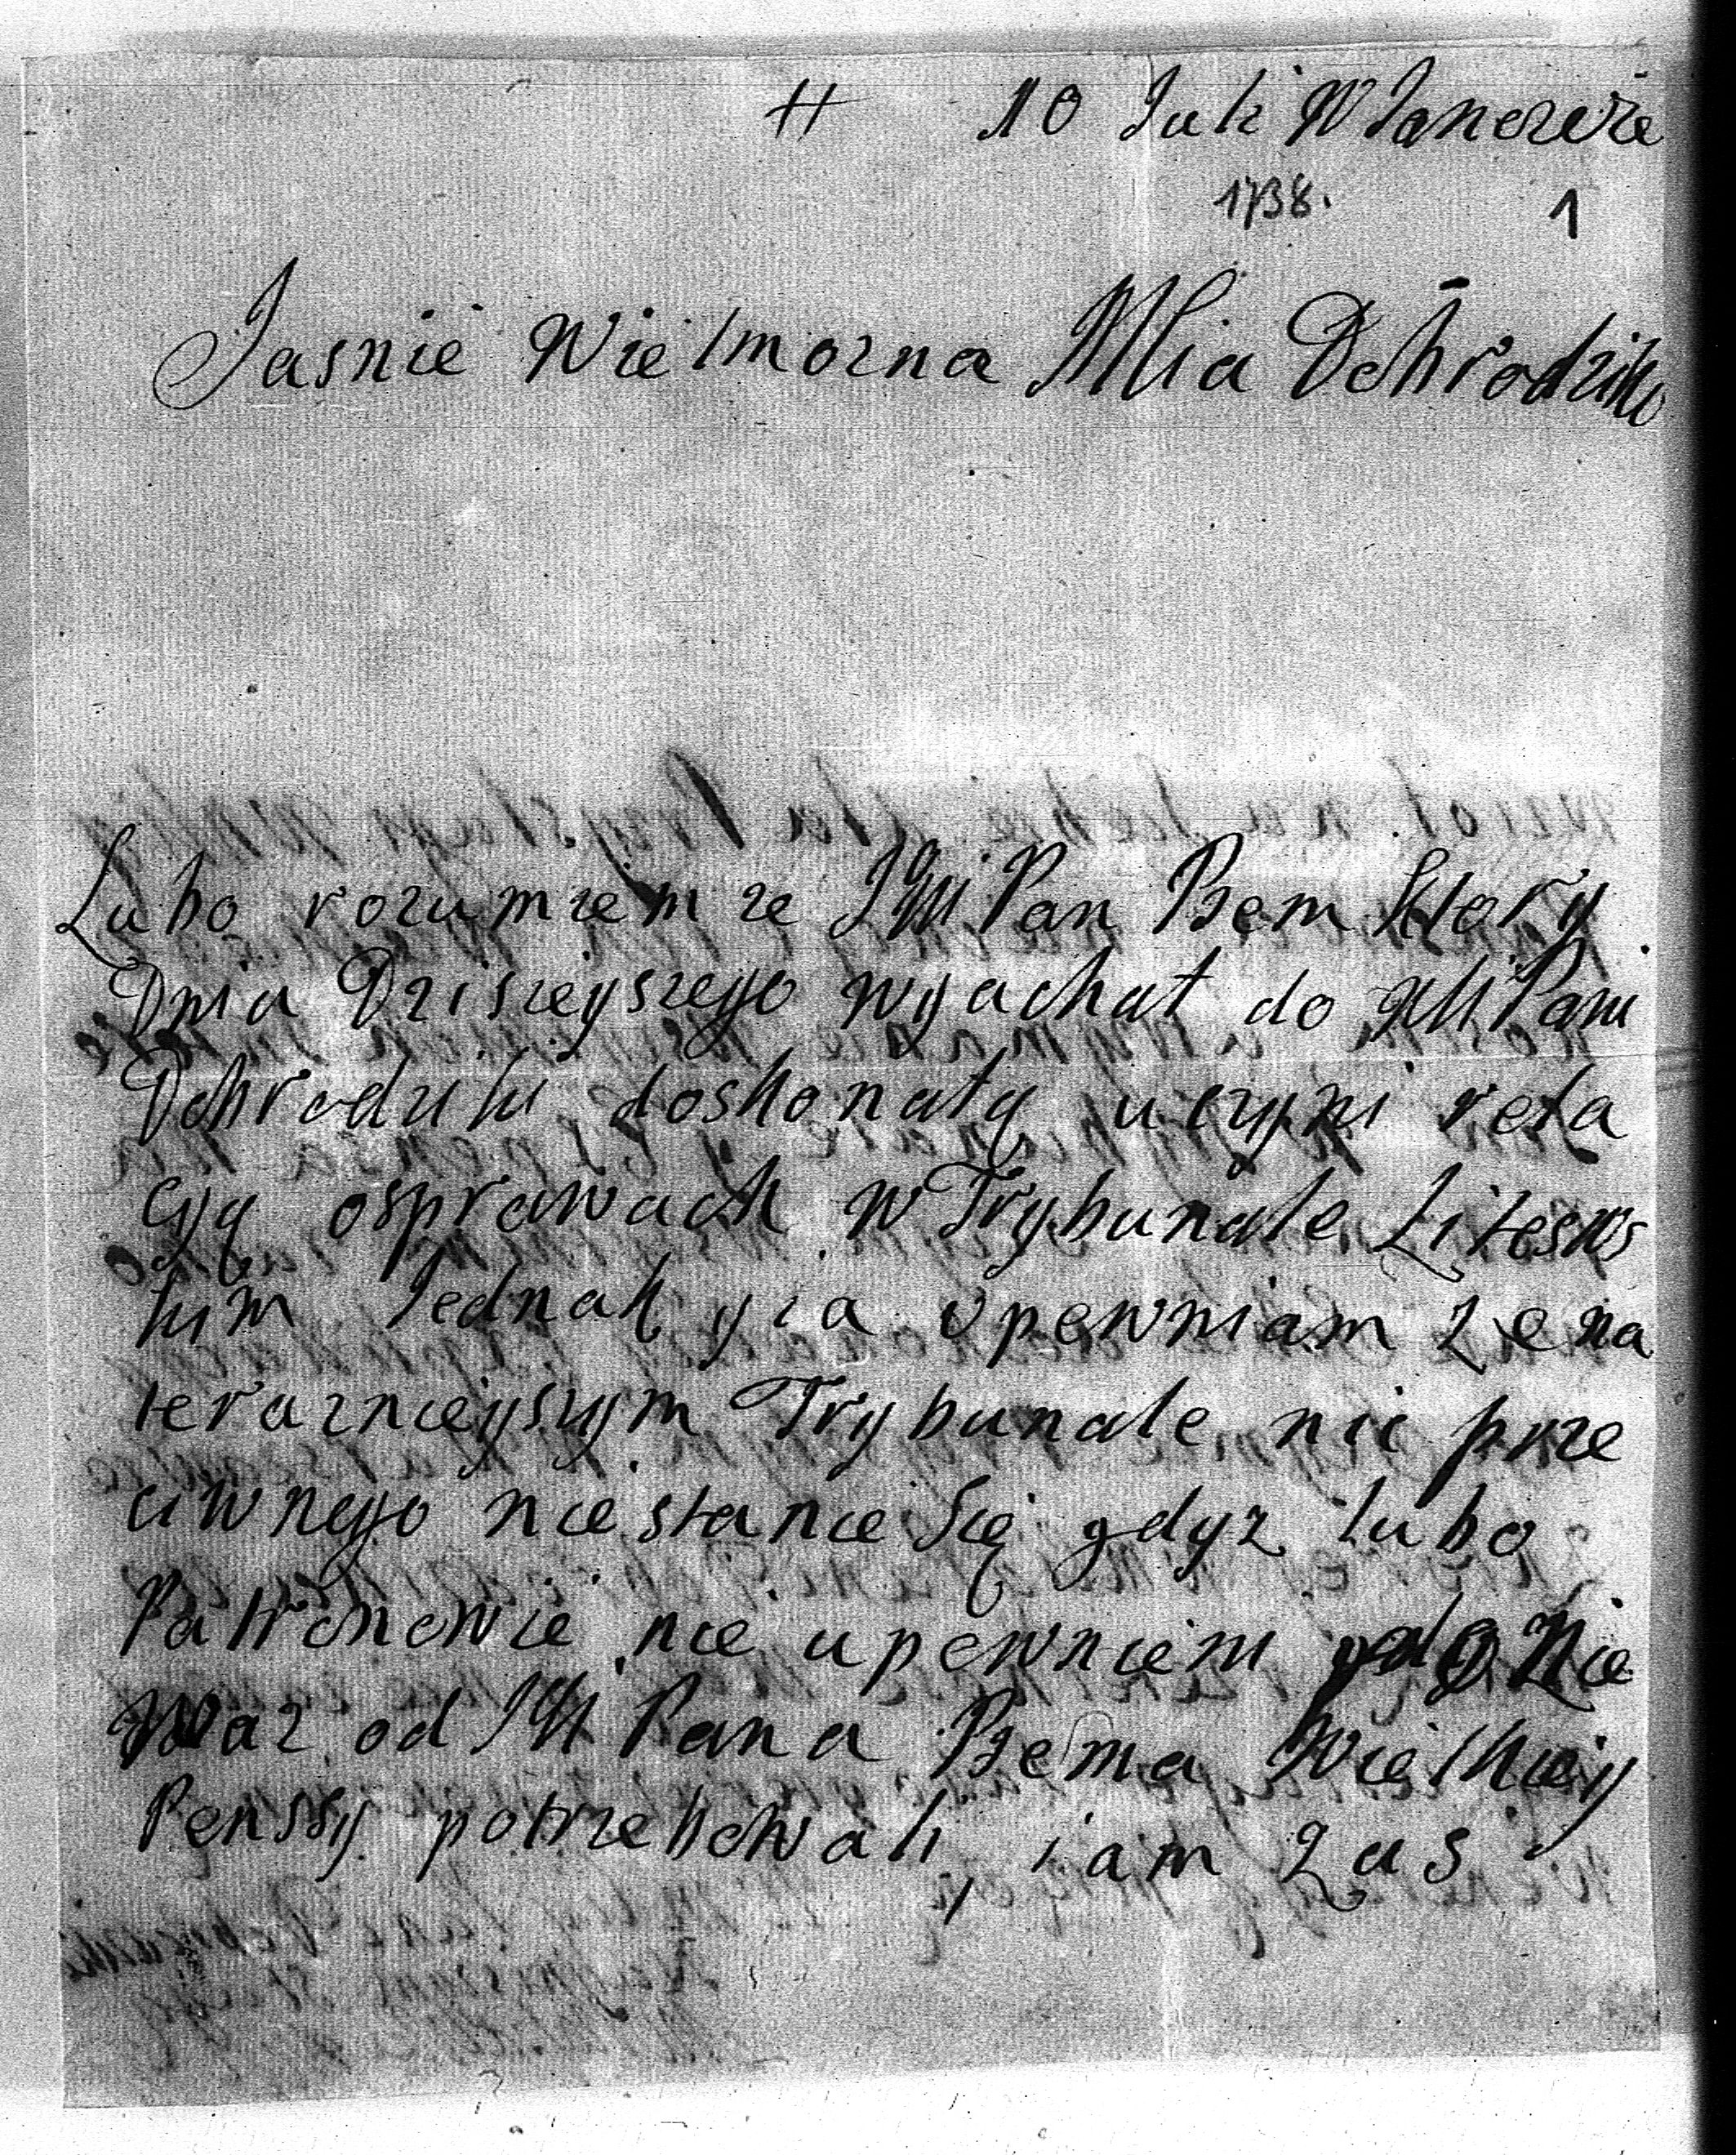 # 10 Juli W Janowie
1738. 1
Jasnie Wielmozna Mcia Dobrodziko
Lubo rozumiem ze JMPan Bem ktory
Dnia Dzisieyszego wyachał do JMPani
Dobrodziki doskonałą uczyni rela
cyą osprawach w Trybunale Litews
kim Jednak y ia upewniam ze na
teraznieyszym Trybunale nic prze
ciwnego niestanie Się gdyz lubo
Patronowie nie upewnieni
waz od JM Pana Bema Wielkiey
Penssy potrzebowali, iam zas